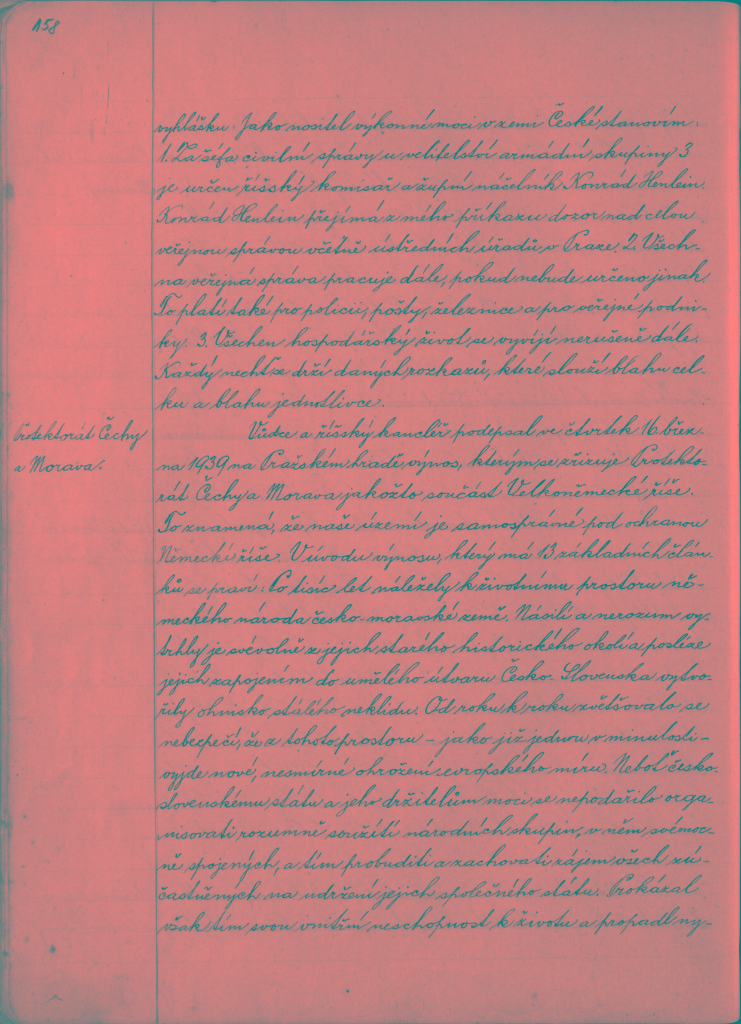 158
vyhlášku: Jako nositel výkonné moci v zemi České stanovím:
1. Za šéfa civilní správy u velitelství armádní skupiny 3
je určen říšský komisař a župní náčelník Konrád Henlein.
Konrád Henlein přejímá z mého příkazu dozor nad celou
veřejnou správou včetně ústředních úřadů v Praze. 2. Všech-
na veřejná správa pracuje dále, pokud nebude určeno jinak.
To platí také pro policii, pošty, železnice a pro veřejné podni-
ky. 3. Všechen hospodářský život se vyvíjí nerušeně dále.
Každý nechť se drží daných rozkazů, které slouží blahu cel-
ku a blahu jednotlivce.
Protektorát Čechy
a Morava.
Vůdce a říšský kancléř podepsal ve čtvrtek 16. břez-
na 1939 na Pražském hradě výnos, kterým se zřizuje Protekto-
rát Čechy a Morava jakožto součást Velkoněmecké říše.
To znamená, že naše území je samosprávné pod ochranou
Německé říše. V úvodu výnosu, který má 13 základních člán-
ků se praví: Po tisíc let náležely k životnímu prostoru ně-
meckého národa česko-moravské země. Násilí a nerozum vy-
trhly je svévolně z jejich starého historického okolí a posléze
jejich zapojením do umělého útvaru Česko-Slovenska vytvo-
řily ohnisko stálého neklidu. Od roku k roku zvětšovalo se
nebezpečí, že z tohoto prostoru – jako již jednou v minulosti –
vyjde nové, nesmírné ohrožení evropského míru. Neboť česko-
slovenskému státu a jeho držitelům moci se nepodařilo orga-
nisovati rozumně soužití národních skupin, v něm svémoc-
ně spojených, a tím probuditi a zachovati zájem všech zú-
častněných na udržení jejich společného státu. Prokázal
však tím svou vnitřní neschopnost k životu a propadl ny-